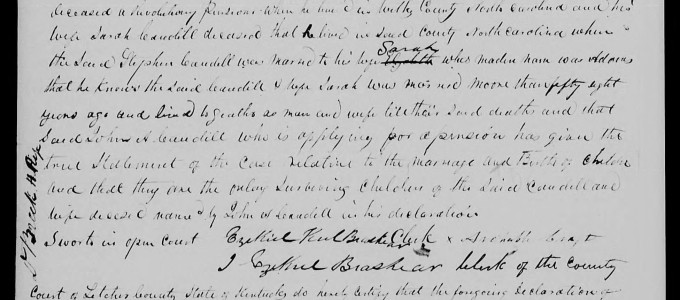 deceased a Revolutionary pensioner when he lived in Wilks County North Carolina and his
wife Sarah Caudill deceased that he lived in said county North Carolina when
the said Stephen Caudill was married to his wife Elizabeth Sarah whos maden nam was Adams
that he knows the said Caudill & wife Sarah was married moore than fifty eight
years ago and lived together as man and wife till their said deaths and that
said John A Caudill who is applying for a pension has given the
true statement of the case relative to the marriage and Births of children
and that they are the onley surviving children of the said Caudill and
wife decesed named by John A Caudill in his declaration
Sworts in open court Ezekiel Brashear Clerk x
I Ezekiel Brashear Clerk of the County
Court of Letcher County State of Kentucky do herely certify that the foregoing Declaration &